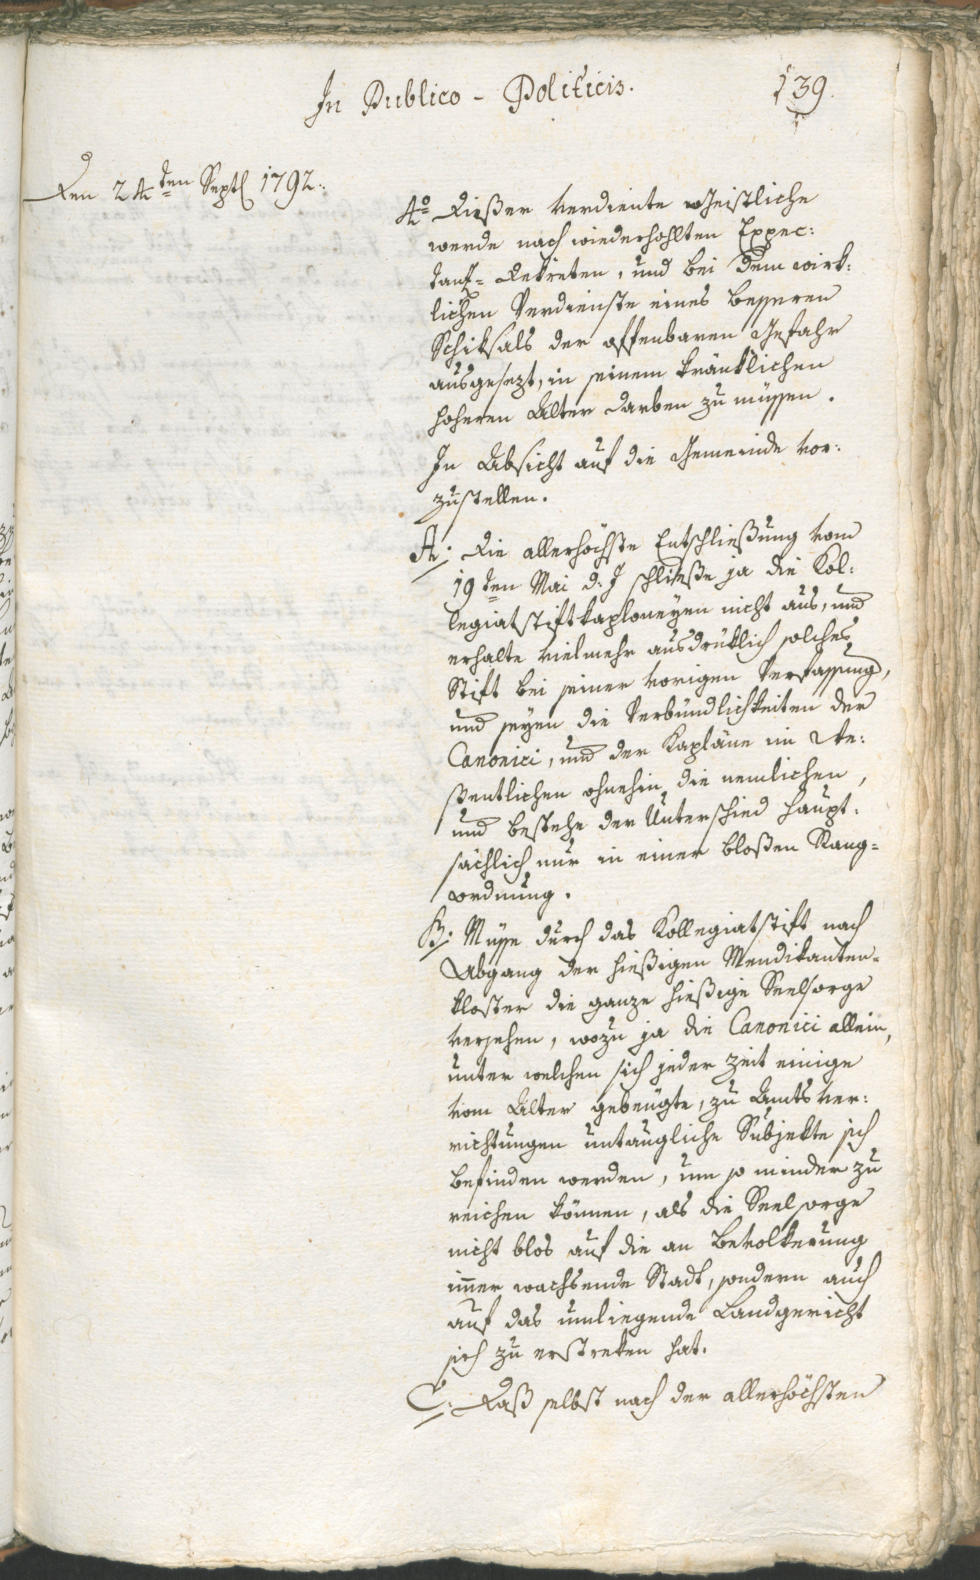 In Publico - Politicis.
139.
Den 24ten Septb 1792.
4o Dießer verdiente Geistliche
werde nach wiederhohlten Expec:
tanz-Dekreten, und bei dem wirk:
lichen Verdienste eines besseren
Schiksals der offenbaren Gefahr
ausgesezt, in seinem kränklichen
hoheren Alter darben zu müssen.
In Absicht auf die Gemeinde vor:
zustellen.
A: Die allerhöchste Entschließung vom
19ten Mai d: J schließe ja die Kol:
legiatstiftkaploneyen nicht aus, und
erhalte vielmehr ausdrüklich solches
Stift bei seiner vorigen Verfassung,
und seyen die Verbündlichkeiten der
Canonici, und der Kapläne im We:
sentlichen ohnehin die nemlichen,
und bestehe der Unterschied haupt:
sächlich nur in einer bloßen Rang-
ordnung.
B: Müsse durch das Kollegiatstift nach
Abgang der hießigen Mendikanten-
kloster die ganze hießige Seelsorge
versehen, wozu ja die Canonici allein,
unter welchen sich jeder Zeit einige
vom Alter gebeugte, zu Amtsver:
richtungen untaugliche Subjekte sich
befinden werden, um so minder zu
reichen können, als die Seelsorge
nicht blos auf die an Bevolkerung
imer wachsende Stadt, sondern auch
auf das umliegende Landgericht
sich zu erstreken hat.
C: Daß selbst nach der allerhöchsten